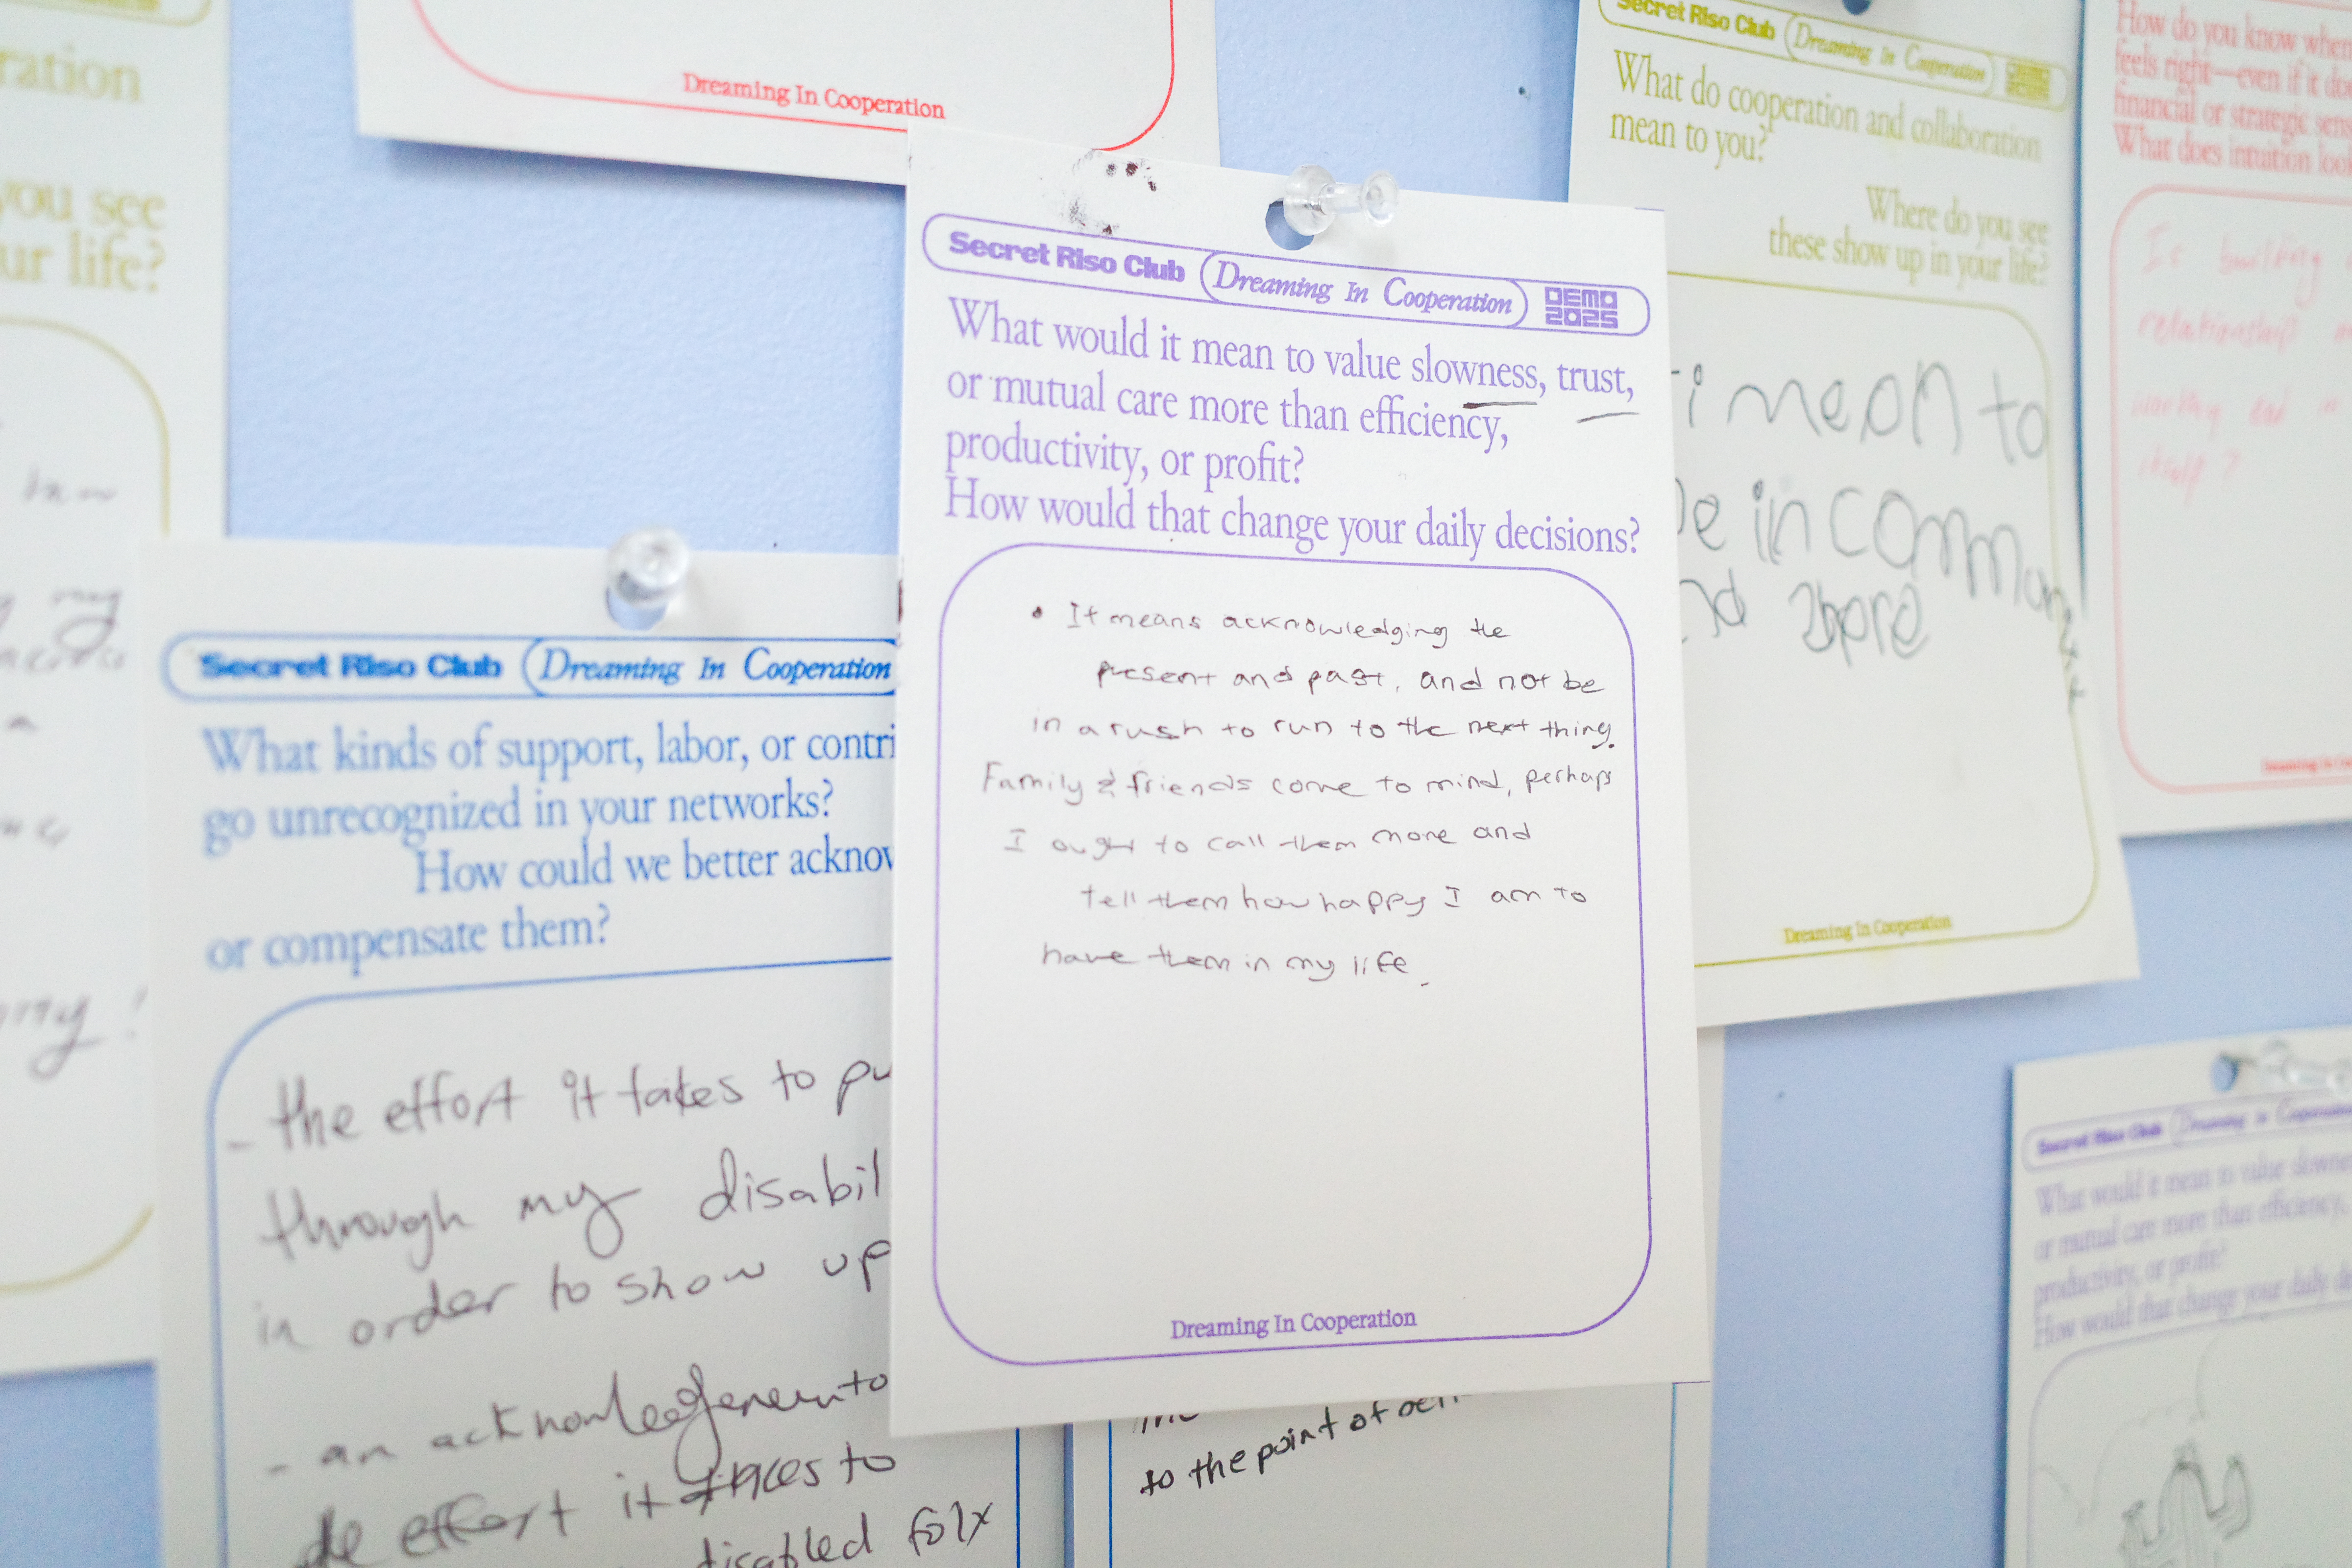 ration
you see
ur life?
Dreaming In Cooperation
Secret Riso Club Dreaming In Cooperation DEMO 2025
What would it mean to value slowness, trust,
or mutual care more than efficiency,
productivity, or profit?
How would that change your daily decisions?
• It means acknowledging the
present and past, and not be
in a rush to run to the next thing.
Family & friends come to mind, perhaps
I ought to call them more and
tell them how happy I am to
have them in my life.
Dreaming In Cooperation
Secret Riso Club Dreaming In Cooperation
What kinds of support, labor, or contri
go unrecognized in your networks?
How could we better acknow
or compensate them?
- the effort it takes to pu
through my disabil
in order to show up
- an
effort it takes to
disabled folx
to the point of
Secret Riso Club Dreaming In Cooperation DEMO 2025
What do cooperation and collaboration
mean to you?
Where do you see
these show up in your life?
mean to
in
Dreaming In Cooperation
How do you know when
feels right—even if it do
financial or strategic sens
What does intuition look
Is building
relationship
itself?
Secret Riso Club Dreaming In Cooperation
What would it mean to value slowne
or mutual care more than efficiency,
productivity, or profit?
How would that change your daily d